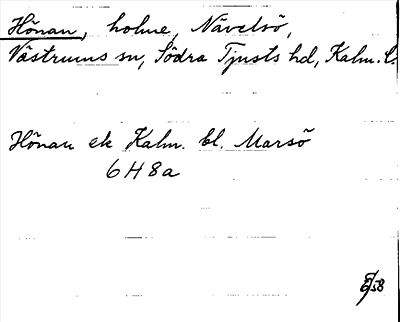 Hönan, holme, Nävelsö,
Västrums sn, Södra Tjusts hd, Kalm. l.
Hönan ek Kalm. bl. Marsö
6H8a